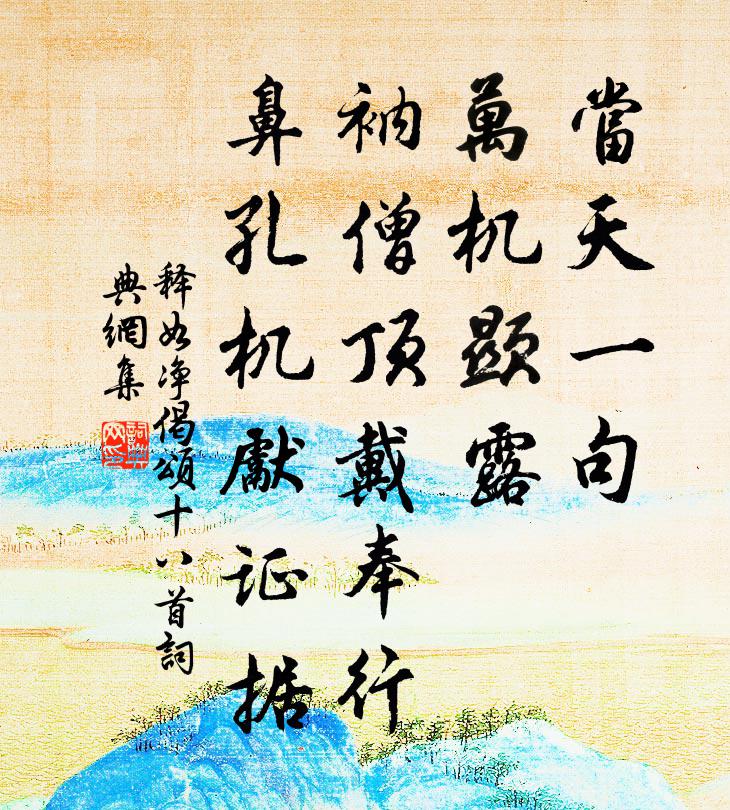 當天一句
萬机顯露
衲僧頂戴奉行
鼻孔机獻证据
释如净偈頌十八首詞
典網集